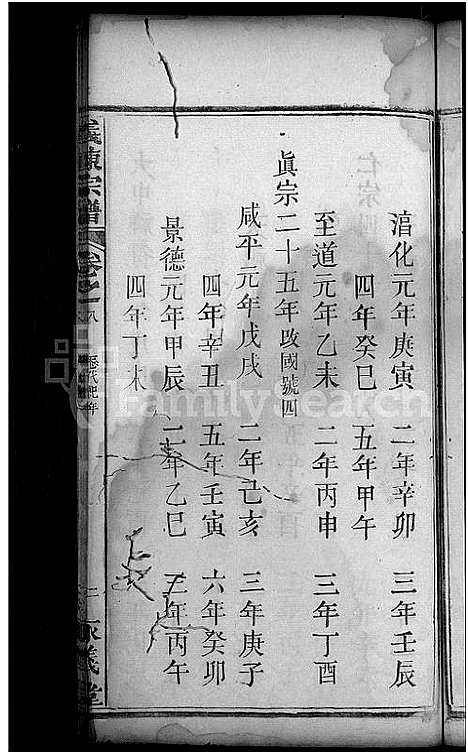 淯化元年庚寅 二年辛卯 三年壬辰
四年癸巳 五年甲午
至道元年乙未 二年丙申 三年丁酉
眞宗二十五年改國號四
咸平元年戊戌 二年己亥 三年庚子
四年辛丑 五年壬寅 六年癸卯
景德元年甲辰 二年乙巳 三年丙午
四年丁未
義陳宗譜 卷之一 歷代紀年
義堂
FamilySearch